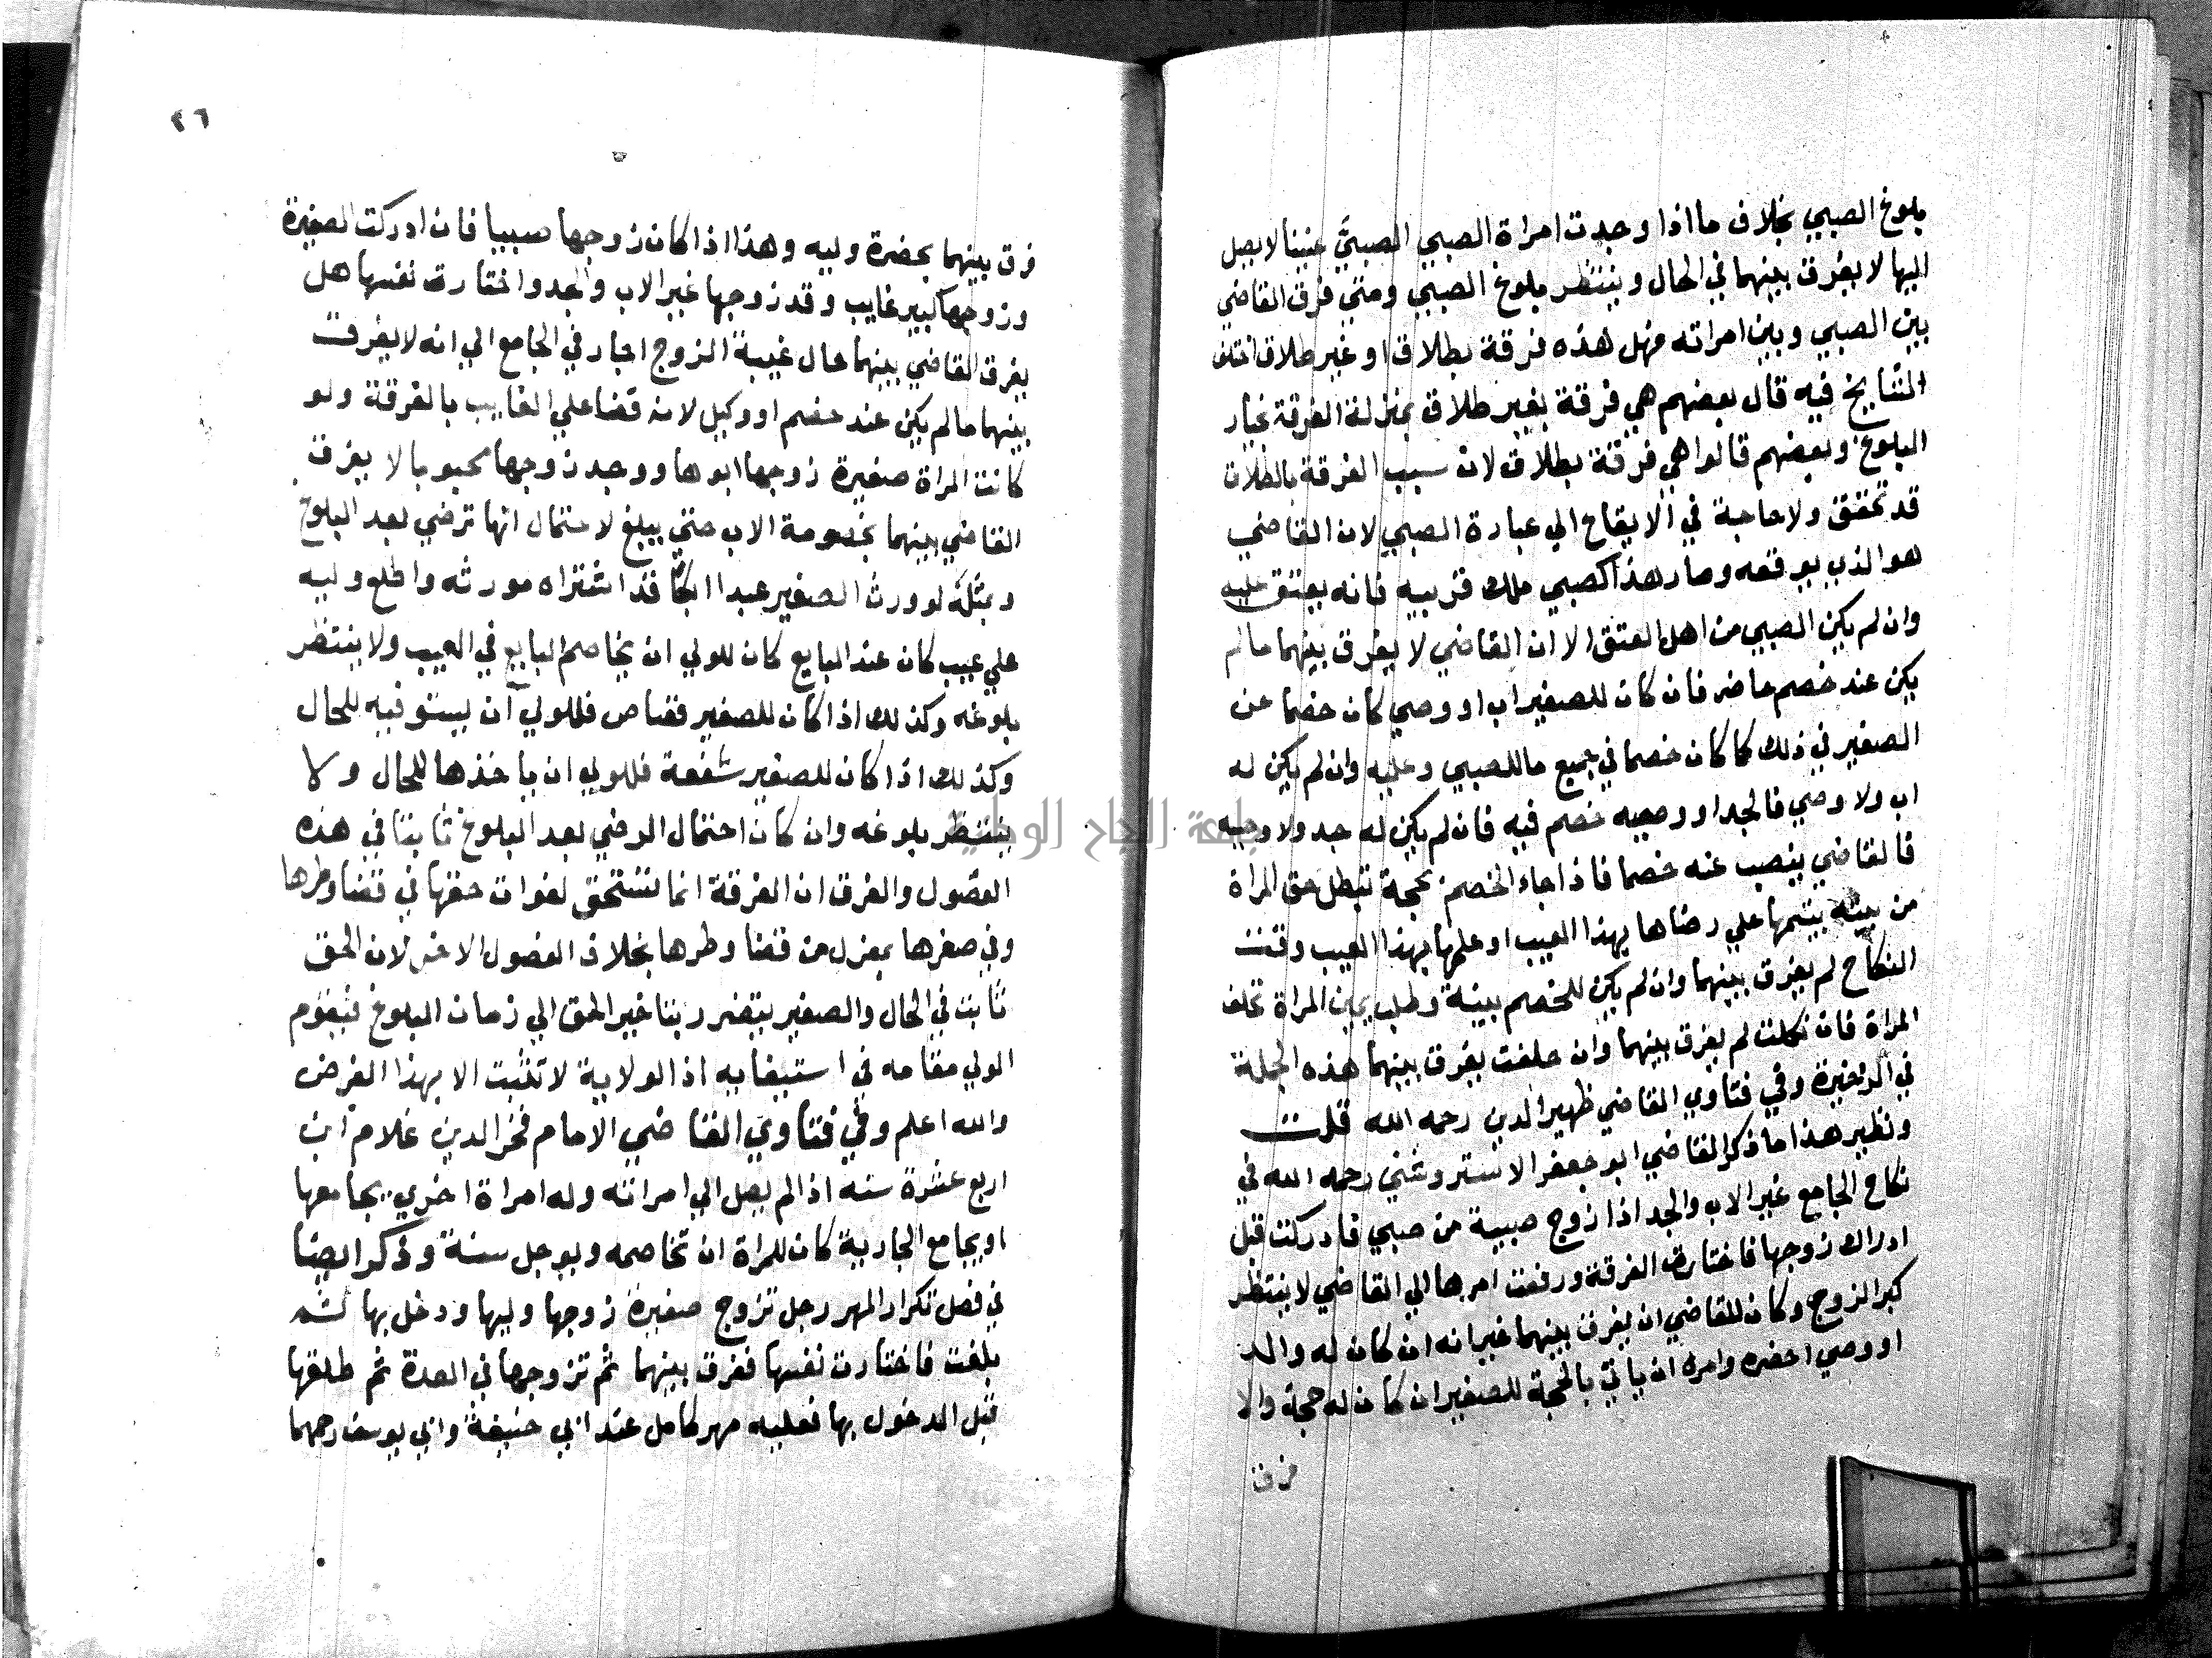 بلوغ الصبي بخلاف ما اذا وجدت امراة الصبي الصبيَّ عنينا لا يصل
اليها لا يفرق بينهما في الحال وينتظر بلوغ الصبي ومتي فرق القاضي
بين الصبي وبين امراته فهل هذه فرقة بطلاق او غير طلاق اختلف
المشايخ فيه قال بعضهم هي فرقة بغير طلاق بمنزلة الفرقة بخيار
البلوغ وبعضهم قالوا هي فرقة بطلاق لان سبب الفرقة بالطلاق
قد تحقق ولا حاجة في الايقاع الي عبارة الصبي لان القاضي
هو الذي يوقعه وصار هذا كصبي ملك قريبه فانه يعتق عليه
وان لم يكن الصبي من اهل العتق الا ان القاضي لا يفرق بينهما ما لم
يكن عند خصم حاضر فان كان للصغير اب او وصي كان خصما عن
الصغير في ذلك كما كان خصما في جميع ما للصبي وعليه وان لم يكن له
اب ولا وصي فالجد او وصيه خصم فيه فان لم يكن له جد ولا وصيه
فالقاضي ينصب عنه خصما فاذا جاء الخصم بحجة تبطل حق المراة
من بينة يقيمها علي رضاها بهذا العيب او علمها بهذا العيب وقت
النكاح لم يفرق بينهما وان لم يكن للخصم بينة وطلب يمين المراة تحلف
المراة فان نكلت لم يفرق بينهما وان حلفت يفرق بينهما هذه الجملة
في الذخيرة وفي فتاوي القاضي ظهير الدين رحمه الله قلت
ونظير هذا ما ذكر القاضي ابو جعفر الاستروشني رحمه الله في
نكاح الجامع غير الاب والجد اذا زوج صبية من صبي فادركت قبل
ادراك زوجها فاختارت الفرقة ورفعت امرها الي القاضي لا ينتظر
كبر الزوج وكان للقاضي ان يفرق بينهما غير انه ان كان له والد
او وصي احضره وامره ان ياتي بالحجة للصغير ان كان له حجة والا
فرق بينهما بحضرة وليه وهذا اذا كان زوجها صبيا فان ادركت الصغيرة
وزوجها كبير غايب وقد زوجها غير الاب والجد واختارت نفسها هل
يفرق القاضي بينهما حال غيبة الزوج اجار في الجامع الي انه لا يفرق
بينهما ما لم يكن عند خصم او وكيل لانه قضا علي الغايب بالفرقة ولو
كانت المراة صغيرة زوجها ابوها ووجد زوجها مجبوبا لا يفرق
القاضي بينهما بخصومة الاب حتي يبلغ لاحتمال انها ترضي بعد البلوغ
وبمثله لو ورث الصغير عبدا قد اشتراه مورثه واطلع وليه
علي عيب كان عند البايع كان للولي ان يخاصم البايع في العيب ولا ينتظر
بلوغه وكذلك اذا كان للصغير قصاص فللولي ان يستوفيه للحال
وكذلك اذا كان للصغير شفعة فللولي ان ياخذها للحال ولا
ينتظر بلوغه وان كان احتمال الرضي بعد البلوغ ثابتا في هذه
الفصول والفرق ان الفرقة انما تستحق لفوات حقها في قضا وطرها
وفي صغرها بمعزل من قضا وطرها بخلاف الفصول الاخر لان الحق
ثابت في الحال والصغير يتضرر بتاخير الحق الي زمان البلوغ فيقوم
الولي مقامه في استيفايه اذ الولاية لا تثبت الا بهذا الغرض
والله اعلم وفي فتاوي القاضي الامام فخر الدين غلام ابن
اربع عشرة سنه اذا لم يصل الي امراته وله امراة اخري يجامعها
او يجامع الجارية كان للمراة ان تخاصمه ويوجل سنة وذكر ايضا
في فصل تكرار المهر رجل تزوج صغيرة زوجها وليها ودخل بها ثم
بلغت فاختارت نفسها ففرق بينهما ثم تزوجها في العدة ثم طلقها
قبل الدخول بها فعليه مهر كامل عند ابي حنيفة وابي يوسف رحمهما
٢٦
جامعة النجاح الوطنية